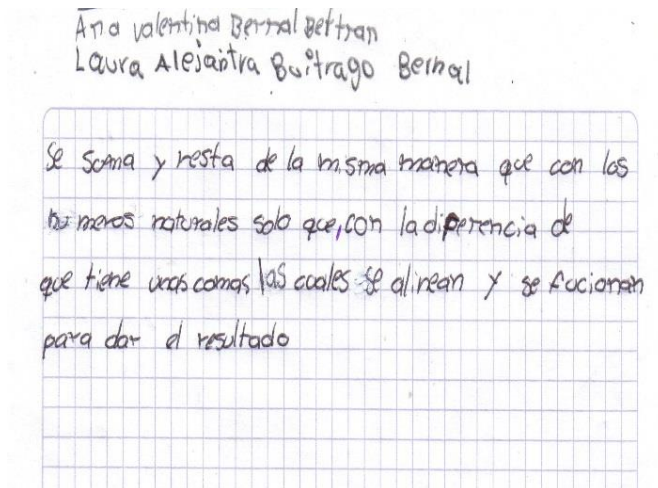 Ana valentina Bernal Beltran
Laura Alejantra Buitrago Bernal
Se soma y resta de la misma manera que con los
numeros naturales solo que, con la diperencia de
que tiene unas comas las cuales se alinean y se fucionan
para dar el resultado